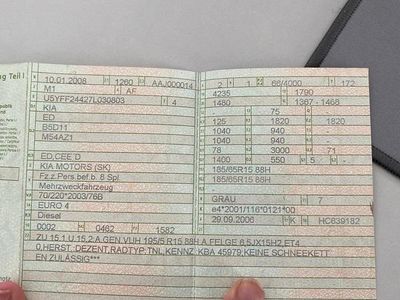 ng Teil I
10.01.2008 1260 AAJ000014 2 1 66/4000 172
M1 AF 4235 1790
U5YFF24427L030803 4 1480 1367 - 1468
KIA - 75 -
ED 125 1820 1820
B5D11 1040 940 -
M54AZ1 1040 940 -
78 3000 71
ED,CEE D 1400 550 5 -
KIA MOTORS (SK) 185/65R15 88H
Fz.z.Pers.bef.b. 8 Spl. 185/65R15 88H
Mehrzweckfahrzeug -
70/220*2003/76B GRAU 7
EURO 4 e4*2001/116*0121*00
Diesel 29.09.2006 K HC639182
0002 0462 1582
ZU 15.1 U.15.2:A GEN VIJH 195/5 R15 88H A.FELGE 6,5JX15H2,ET4
0,HERST.:DEZENT,RADTYP:TNL,KENNZ:KBA 45979;KEINE SCHNEEKETT
EN ZULÄSSIG***